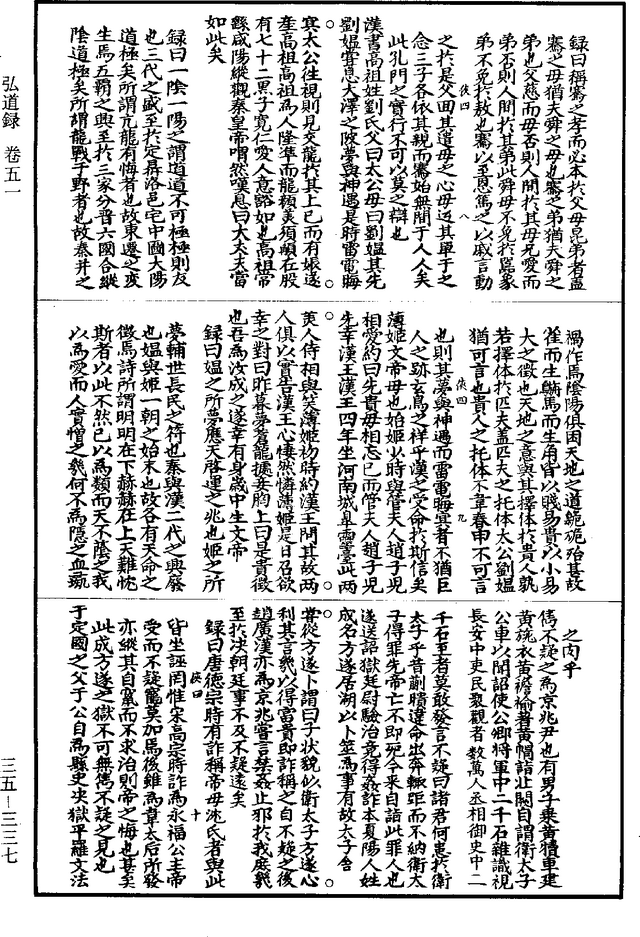 弘道錄 卷五一
三五—三三七
錄曰稱騫之孝而必本於父母昆弟者蓋
騫之母猶夫舜之母也騫之弟猶夫舜之
弟也父慈而母否則人間於其母兄愛而
弟否則人間於其弟此舜母不免於嚚象
弟不免於敖也騫以至恩篤之以感言動
俠四 八
之於是父回其遣母之心母迈其單子之
念三子各依其親而騫始無間于人人矣
此孔門之實行不可以莫之辯也
漢書高祖姓劉氏父曰太公母曰劉媼其先
劉媼嘗息大澤之陂夢與神遇是時雷電晦
冥太公往視則見交龍於其上已而有娠遂
產高祖高祖為人隆準而龍顏美須髯左股
有七十二黑子寬仁愛人意豁如也高祖常
繇咸陽縱觀秦皇帝喟然嘆息曰大丈夫當
如此矣
錄曰一陰一陽之謂道道不可極極則反
也三代之盛至於定鼎洛邑宅中圖大陽
道極矣所謂亢龍有悔者也故東遷之後
生馬五霸之興至於三家分晉六國合縱
陰道極矣所謂龍戰于野者也故秦并之
禍作焉陰陽俱困天地之道
雀而生鸇馬而生角皆以賤易貴以小易
大之徵也天地之意與其擇体於貴人孰
若擇体於匹夫蓋匹夫之托体太公劉媼
猶可言也貴人之托体不韋春申不可言
俠四 九
也則其夢與神遇而雷電晦冥者不猶巨
人之跡玄鳥之祥乎漢之受命於斯信矣
薄姬文帝母也始姬少時與管夫人趙子兒
相愛約曰先貴毋相忘已而管夫人趙子兒
先幸漢王漢王四年坐河南城皋靈臺此兩
美人侍相與笑薄姬初時約漢王問其故兩
人俱以實告漢王心悽然憐薄姬是日召欲
幸之對曰昨暮夢蒼龍據妾胸上曰是貴徵
也吾為汝成之遂幸有身歲中生文帝
錄曰媼之所夢應天啓運之兆也姬之所
夢輔世長民之符也秦與漢二代之興廢
也媼與姬一朝之始末也故各有天命之
徵焉詩所謂明明在下赫赫在上天難忱
斯者以此不然已以為類而天不陰之我
以為愛而人實憎之幾何不為隱之血
之內乎
雋不疑之為京兆尹也有男子乘黃犢車建
黃旐衣黃襜褕著黃帽詣北闕自謂衛太子
公車以聞詔使公卿將軍中二千石雜識視
長安中吏民聚觀者數萬人丞相御史中二
千石至者莫敢發言不疑曰諸君何患於衛
太子乎昔蒯聵違命出奔輒距而不納衛太
子得罪先帝亡不即死今來自詣此罪人也
遂送詔獄廷尉驗治竟得姦詐本夏陽人姓
成名方遂居湖以卜筮為事有故太子舍
嘗從方遂卜謂曰子狀貌似衛太子方遂心
利其言幾以得富貴即詐稱之自不疑之後
趙廣漢亦為京兆嘗言禁姦止邪於我庶幾
至於決朝廷事不及不疑遠矣
錄曰唐德宗時有詐稱帝母沈氏者與此
俠四 十
皆坐誣罔惟宋高宗時詐為永福公主帝
受而不疑寵莫加焉後雖為韋太后所發
亦縱其自竄而不求治則帝之悔也甚矣
此成方遂之獄不可無雋不疑之見也
于定國之父于公自為縣吏決獄平羅文法